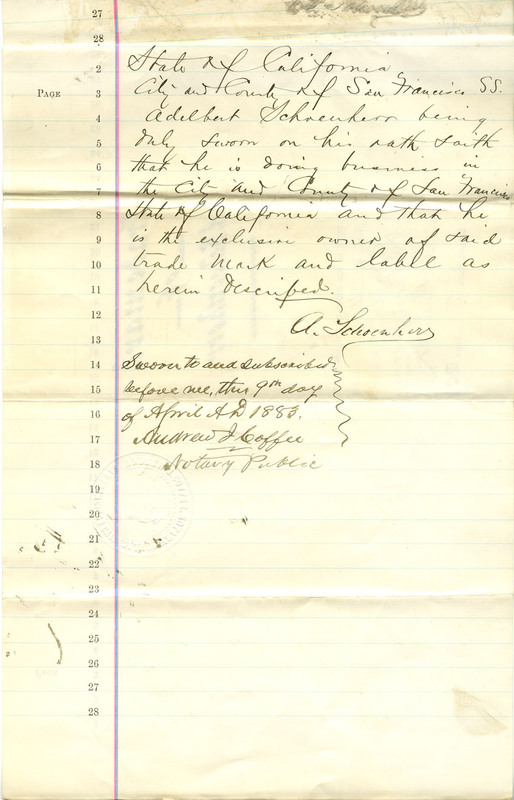 27
28
2 State of California
PAGE 3 City and County of San Francisco SS.
4 Adelbert Schoenherr being
5 duly sworn on his oath saith
6 that he is doing business in
7 the City and County of San Francisco
8 State of California and that he
9 is the exclusive owner of said
10 trade mark and label as
11 herein described.
12 A. Schoenherr
13
14 Sworn to and subscribed
15 before me, this 9th day
16 of April A.D. 1883.
17 Andrew J Coffee
18 Notary Public
19
20
21
22
23
24
25
26
27
28